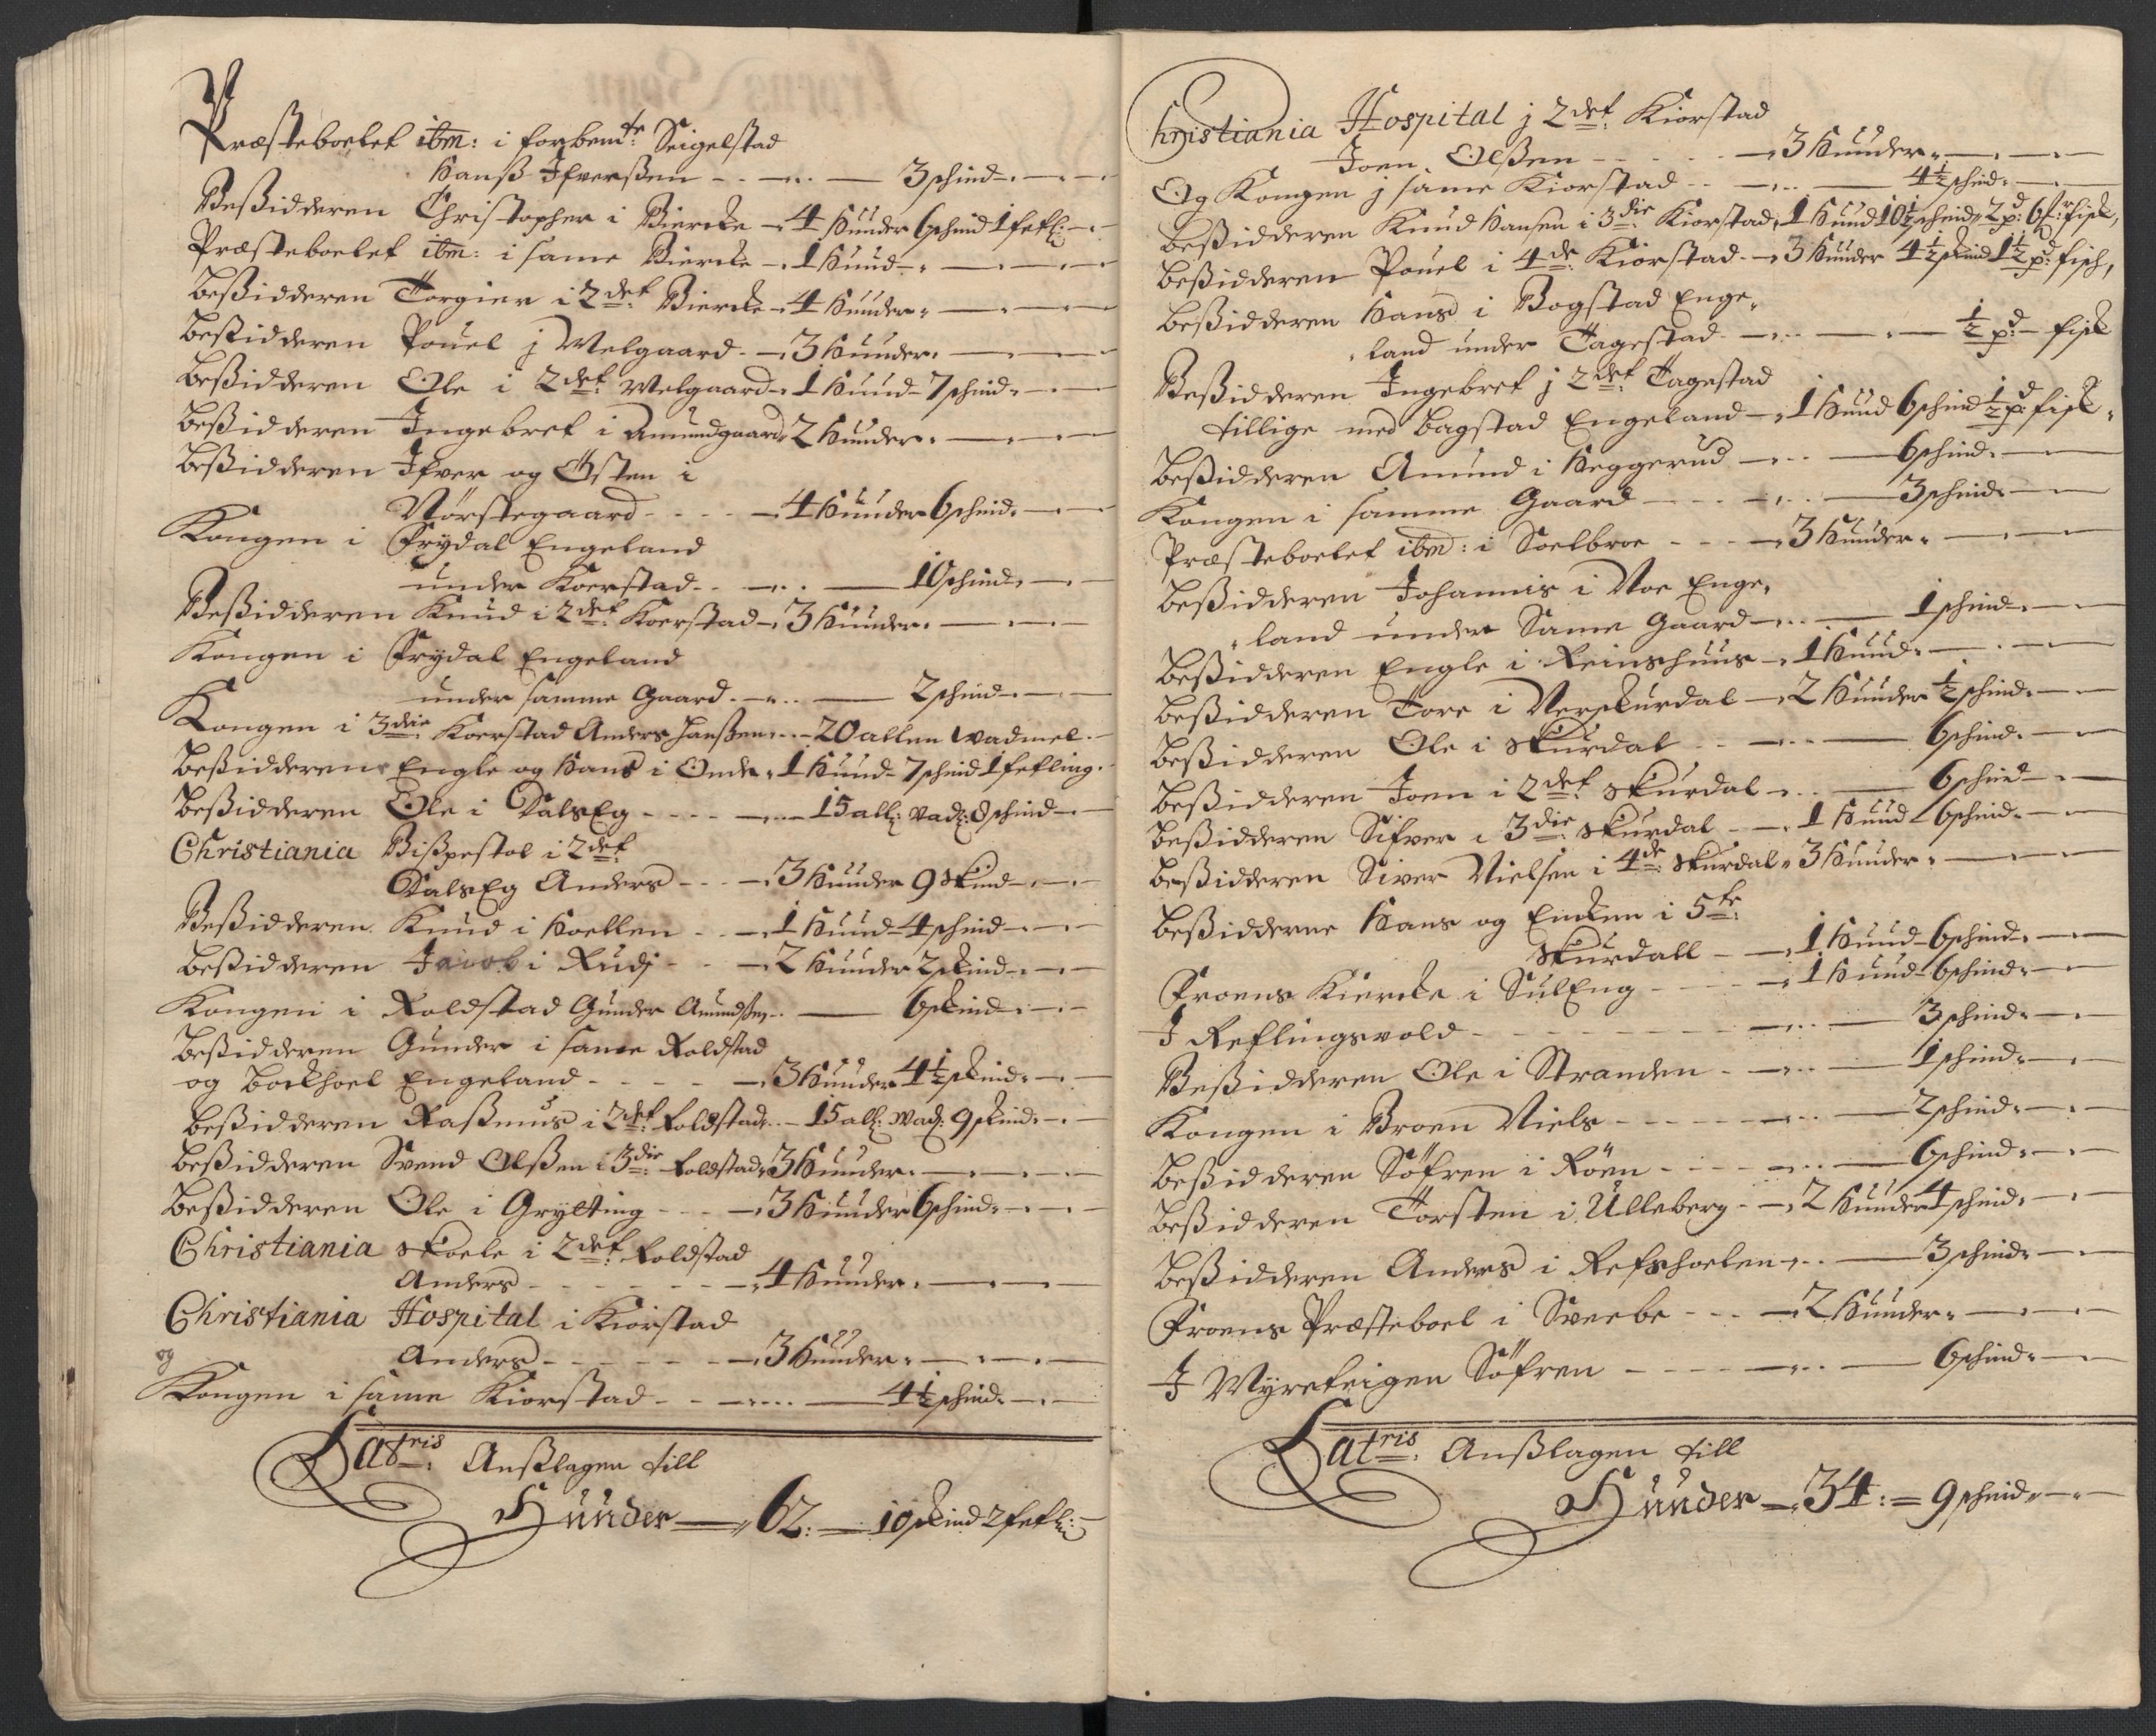 Præsteboelet ibm: i forbemte: Seigelstad
Hanß Ifverßen - - 3 schind
Beßidderen Christopher i Biercke - 4 Hunder 6 schind 1 fetl:
Præsteboelet ibm: i same Biercke - 1 Hund
Beßidderen Torgier i 2det Biercke - 4 Hunder
Beßidderen Pouel j Melgaard - 3 Hunder
Beßidderen Ole i 2det Melgaard - 1 Hund - 7 schind
Beßidderen Ingebret i Amundgaard 2 Hunder
Beßidderen Ifver og Østen i
Nørstegaard - - - 4 Hunder 6 schind
Kongen i Frydal Engeland
under Koerstad - - 10 schind
Beßidderen Knud i 2det Koerstad - 3 Hunder
Kongen i Frydal Engeland
under samme Gaard - - 2 schind
Kongen i 3die Koerstad Anders Hanßen - 20 allen wadmel
Beßidderene Engle og Hans i Onde - 1 Hund - 7 schind 1 fetling
Beßidderen Ole i DalsEg - - - 15 all: vad: 8 schind
Christiania Bißpestol i 2det
DalsEg Anders - - 3 Hunder 9 skind
Beßidderen Knud i Hoellen - - 1 Hund - 4 schind
Beßidderen Jacob i Rudj - - 2 Hunder 2 skind
Kongen i Roldstad Gunder Amundsen - - 6 skind
Beßidderen Gunder i same Roldstad
og Boekhoel Engeland - - - 3 Hunder 4½ skind
Beßidderen Raßmus i 2det Roldstad - 15 all: Wad: 9 skind
Beßidderen Svend Olßen i 3die Roldstad 3 Hunder
Beßidderen Ole i Grytting - - - 3 Hunder 6 schind
Christiania skoele i 2det Roldstad
Anders - - - 4 Hunder
Christiania Hospital i Kiorstad
Anders - - - 3 Hunder
og
Kongen i same Kiorstad - - 4½ schind
Latris: Anßlagen till
Hunder - 62: - 10 skind 2 fetl:
Christiania Hospital j 2det Kiorstad
Joen Olßen - - - 3 Hunder
Og Kongen j same Kiorstad - - 4½ schind
Beßidderen Knud Hansen i 3die Kiorstad 1 Hund 10½ schind 2 pd: 6 fisk
Beßidderen Pouel i 4de Kiorstad - 3 Hunder 4½ skind 1½ pd: fisk
Beßidderen Hans i Bogstad Enge-
land under Tagestad - - ½ pd: fisk
Beßidderen Ingebret j 2det Tagestad
tillige med Bagstad Engeland - 1 Hund 6 schind ½ pd: fisk
Beßidderen Amund i Heggerud - - 6 schind
Kongen i samme Gaard - - - 3 schind
Præsteboelet ibm: i Soelbroe - - - 3 Hunder
Beßidderen Johannis i Moe Enge-
land under Same Gaard - - 1 schind
Beßidderen Engle i Reinshuus - 1 Hund
Beßidderen Tore i Verskurdal - 2 Hunder ½ schind
Beßidderen Ole i Skurdal - - 6 schind
Beßidderen Joen i 2det Skurdal - - 6 schind
Beßidderen Sifver i 3die Skurdal - - 1 Hund 6 schind
Beßidderen Siver Nielsen i 4de Skurdal 3 Hunder
Beßidderne Hans og Encken i 5te:
Skurdall - - 1 Hund - 6 schind
Froens Kiercke i SulEng - - - 1 Hund - 6 schind
I Reflingsvold - - - 3 schind
Beßidderen Ole i Stranden - - 1 schind
Kongen i Broen Niels - - - 2 schind
Beßidderen Söfren i Röen - - 6 schind
Beßidderen Torsten i Ulleberg - 2 Hunder 4 schind
Beßidderen Anders i Refshoelen - - 3 schind
Froens Præsteboel i Sveebe - - - 2 Hunder
I Myreteigen Söfren - - - 6 schind
Latris: Anßlagen till
Hunder - 34: = 9 schind